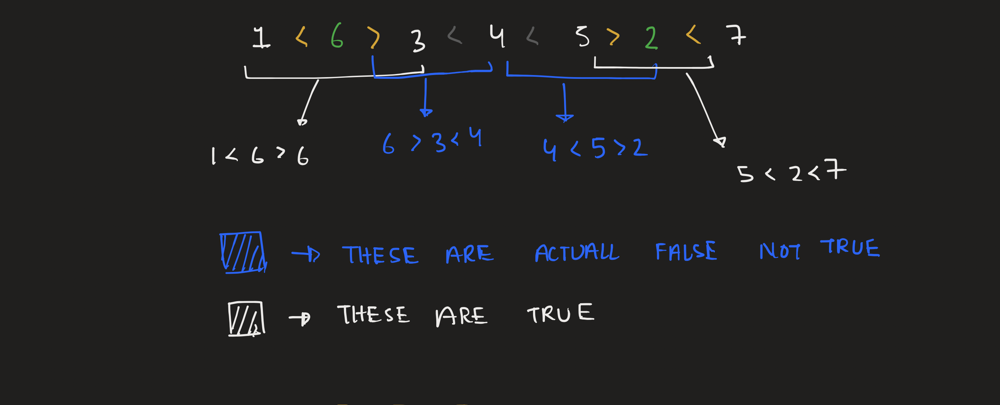 1 < 6 > 3 < 4 < 5 > 2 < 7
1 < 6 > 6
6 > 3 < 4
4 < 5 > 2
5 < 2 < 7
→ THESE ARE ACTUALL FALSE NOT TRUE
→ THESE ARE TRUE